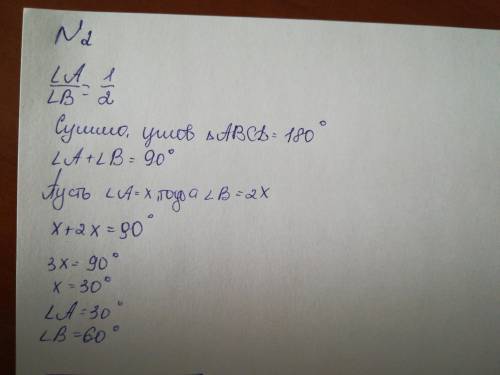 №2
∠A/∠B = 1/2
Сумма углов △ABC = 180°
∠A + ∠B = 90°
Пусть ∠A = x, тогда ∠B = 2x
x + 2x = 90°
3x = 90°
x = 30°
∠A = 30°
∠B = 60°